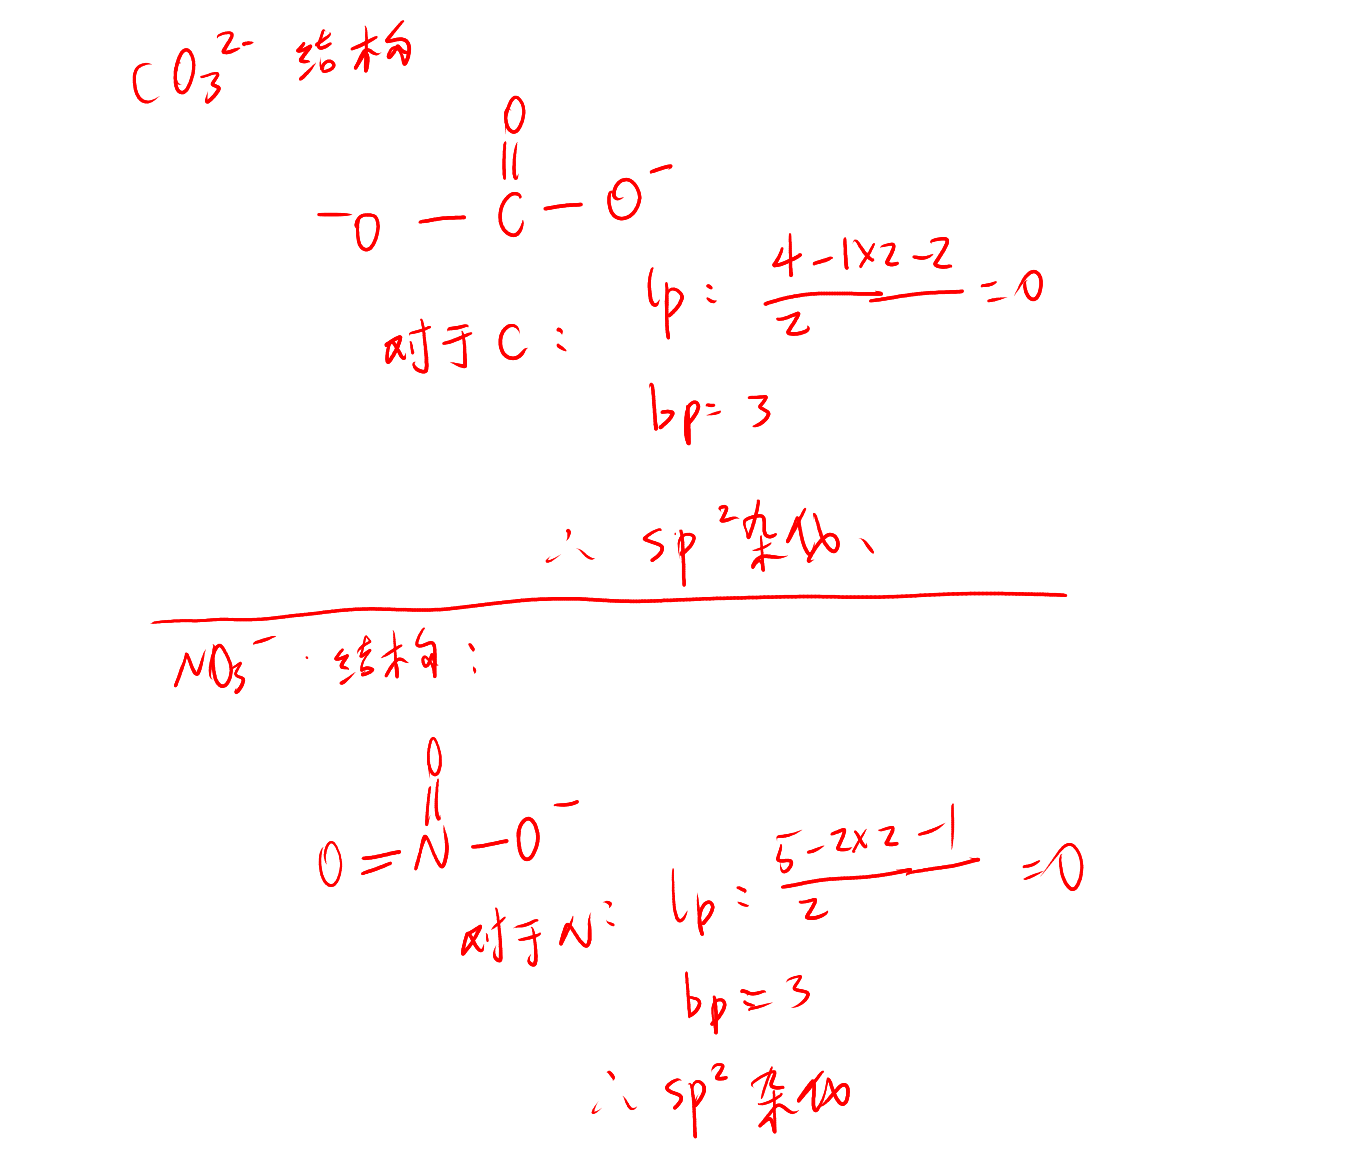 CO₃²⁻ 结构
O
||
⁻O — C — O⁻
lp: (4-1×2-2)/2 =0
对于C:
bp= 3
∴ sp²杂化、
NO₃⁻ · 结构:
O
||
O = N — O⁻
对于N: lp: (5-2×2-1)/2 =0
bp=3
∴ sp² 杂化